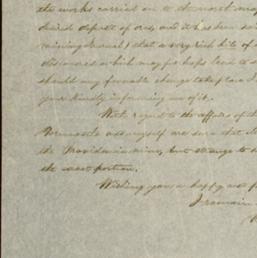 the works carried on to the most
decided deposit of ore, and it has been
mining Journal) that a very rich lode of
discovered which may perhaps lead to
should any favorable change take place I
your kindly informing me of it.
With regard to the affairs of the
and myself are
the Providencia mine, but strange to
the east portion.
Wishing you a happy
I remain